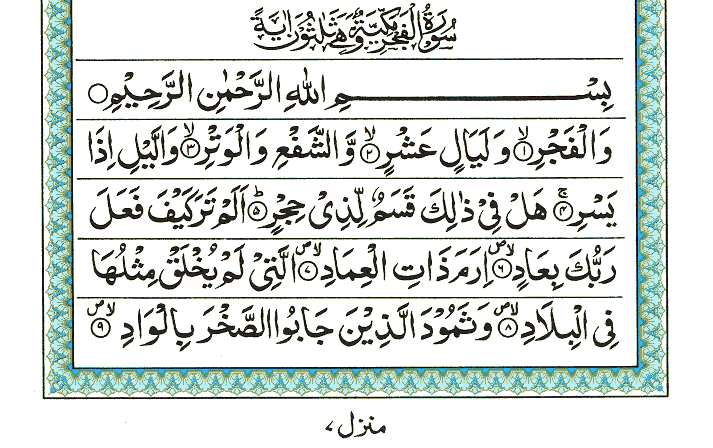 سُوْرَةُ الْفَجْرِ مَكِّيَّةٌ وَّهِيَ ثَلٰثُوْنَ اٰيَةً
بِسْــــــــــــمِ اللهِ الرَّحْمٰنِ الرَّحِيْمِ○
وَالْفَجْرِۙ۱ وَ لَيَالٍ عَشْرٍۙ۲ وَّ الشَّفْعِ وَالْوَتْرِۙ۳ وَالَّيْلِ اِذَا
يَسْرِۚ۴ هَلْ فِيْ ذٰلِكَ قَسَمٌ لِّذِيْ حِجْرٍؕ۵ اَلَمْ تَرَ كَيْفَ فَعَلَ
رَبُّكَ بِعَادٍ۪ۙ۶ اِرَمَ ذَاتِ الْعِمَادِ۪ۙ۷ الَّتِيْ لَمْ يُخْلَقْ مِثْلُهَا
فِي الْبِلَادِ۪ۙ۸ وَ ثَمُوْدَ الَّذِيْنَ جَابُوا الصَّخْرَ بِالْوَادِ۪ۙ۹
منزل ۷